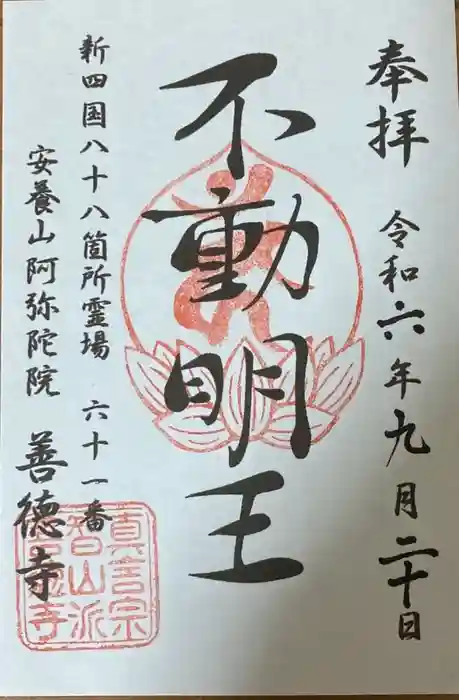 奉拝
令和六年九月二十日
不動明王
新四国八十八箇所霊場 六十一番
安養山阿弥陀院 善徳寺
真言宗
智山派
善徳寺